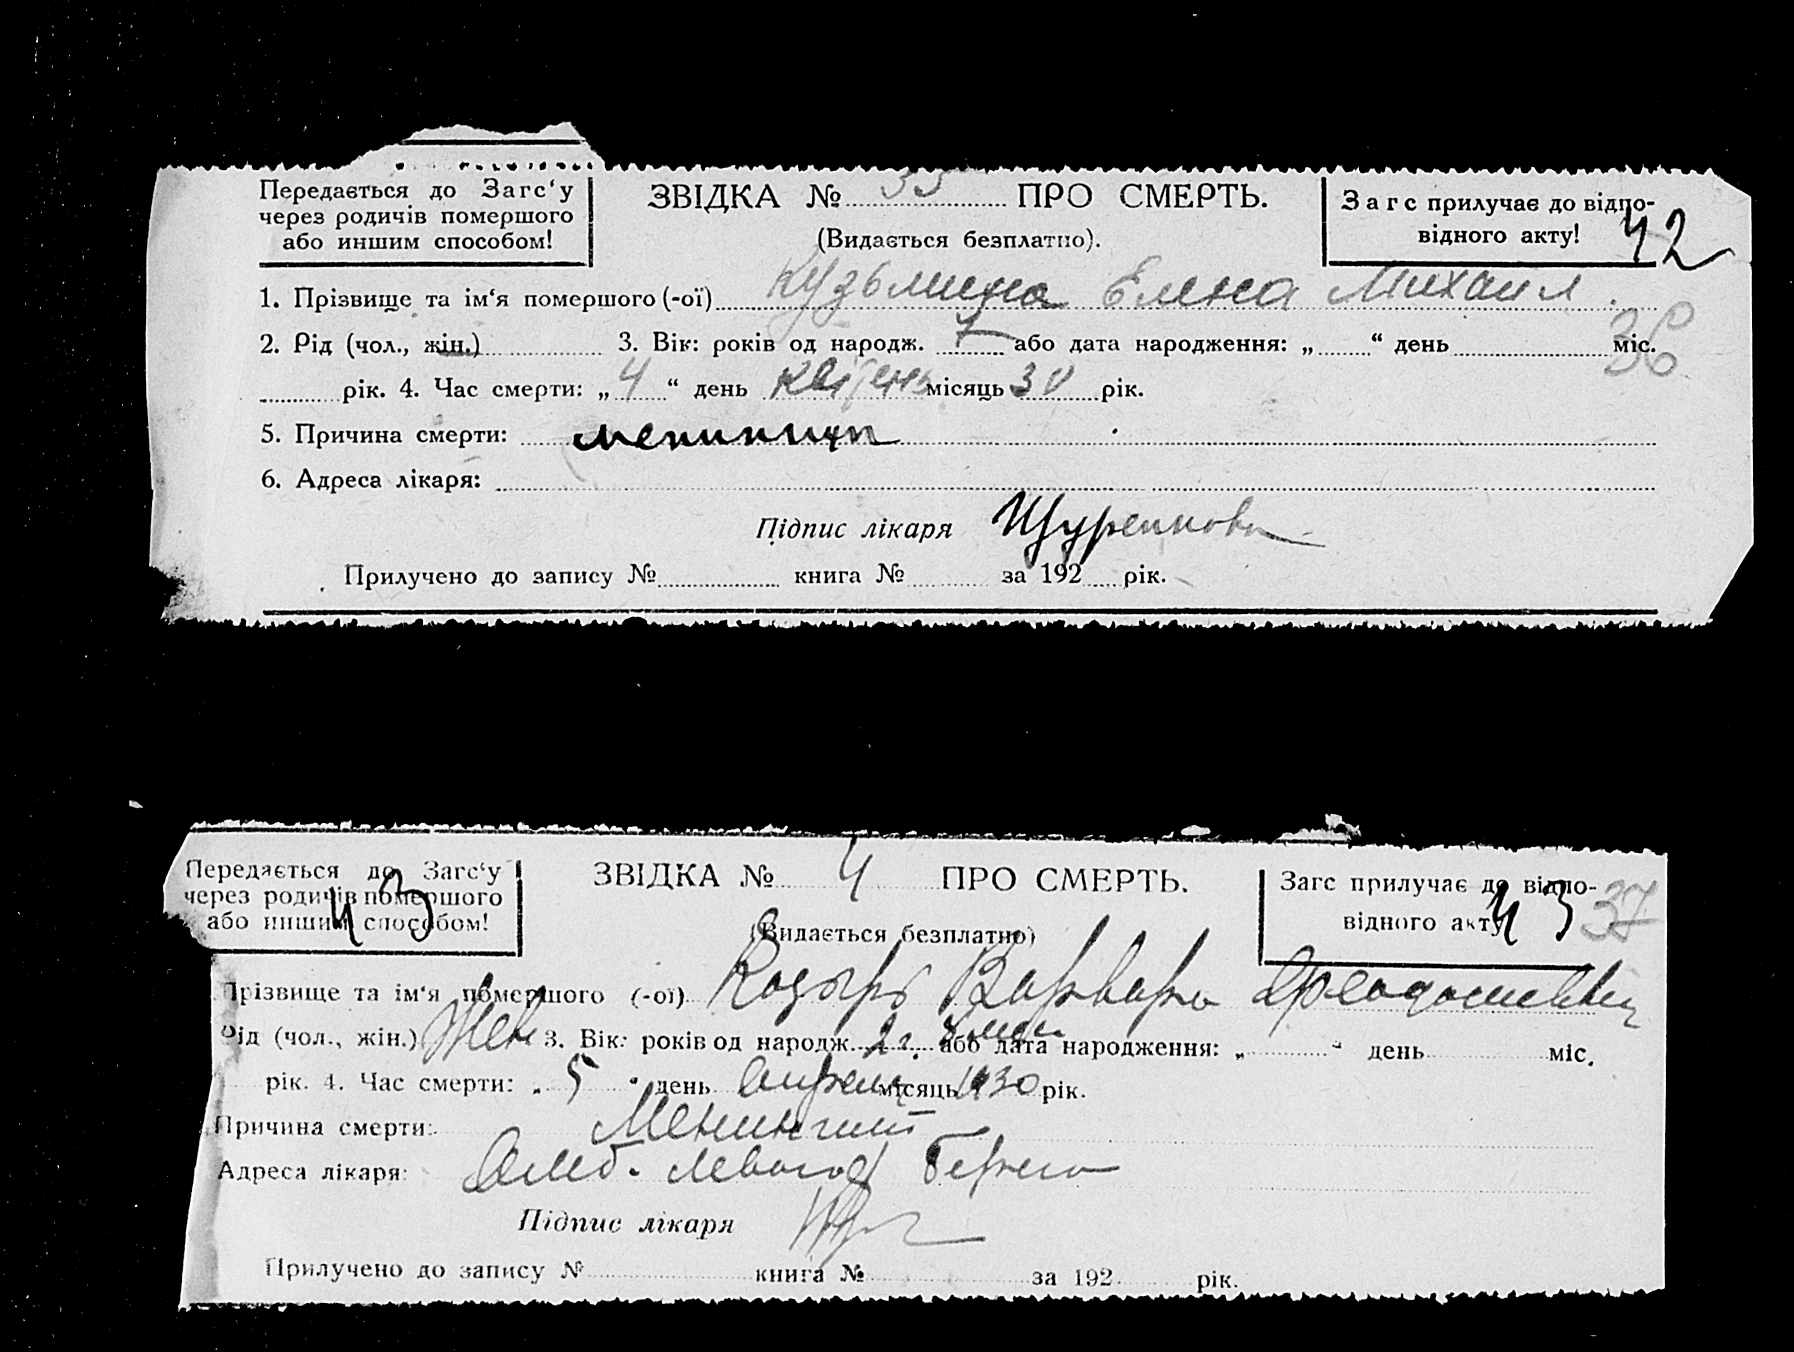 Передається до Загс‘у
через родичів помершого
або иншим способом!
ЗВІДКА № 35 ПРО СМЕРТЬ.
(Видається безплатно).
Загс прилучає до відпо-
відного акту!
42
1. Прізвище та ім‘я помершого (-ої) Кузьмина Елена Михаил.
36
2. Рід (чол., жін.) 3. Вік: років од народж. 7 або дата народження: „ “ день міс.
рік. 4. Час смерти: „ 4 “ день квітень місяць 30 рік.
5. Причина смерти: менингит
6. Адреса лікаря:
Підпис лікаря
Прилучено до запису № книга № за 192 рік.
Передається до Загс‘у
через родичів помершого
або иншим способом!
43
ЗВІДКА № 4 ПРО СМЕРТЬ.
(Видається безплатно)
Загс прилучає до відпо-
відного акту
43
37
Прізвище та ім‘я помершого (-ої) Варвара
Рід (чол., жін.) Жен 3. Вік: років од народж. 2 г. або дата народження: „ “ день міс.
рік. 4. Час смерти: „ 5 “ день апреля місяць 1930 рік.
Причина смерти: Менингит
Адреса лікаря: Амб. левого берега
Підпис лікаря
Прилучено до запису № книга № за 192 рік.